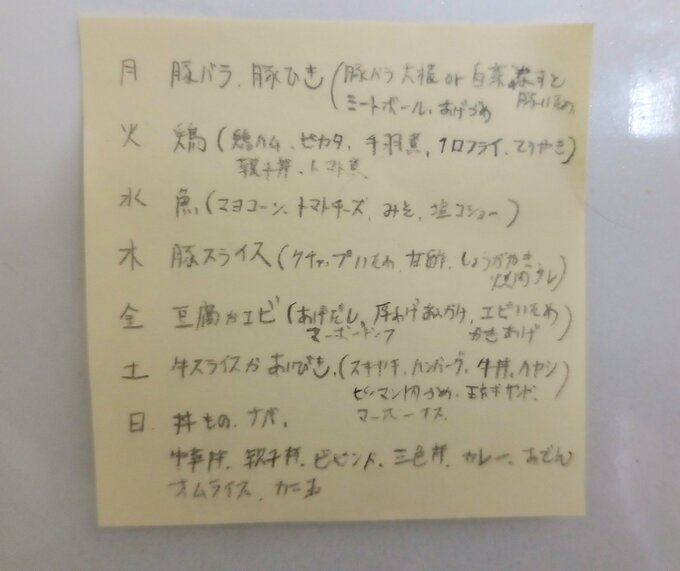 月 豚バラ、豚ひき(豚バラ大根or白菜
ミートボール、あげづめ 豚いため
火 鶏(鶏ハム、ピカタ、手羽煮、1口フライ、てりやき)
親子丼、トマト煮
水 魚(マヨコーン、トマトチーズ、みそ、塩コショー)
木 豚スライス(ケチャップいため、甘酢、しょうがやき
焼肉タレ)
金 豆腐かエビ(あげだし、厚あげあんかけ、エビいため
マーボードーフ かきあげ)
土 牛スライスかあいびき、(スキヤキ、ハンバーグ、牛丼、ハヤシ)
ピーマン肉づめ、玉ネギサンド、
マーボーナス
日、丼もの、ナベ、
中華丼、親子丼、ビビンバ、三色丼、カレー、おでん
オムライス、カニ玉